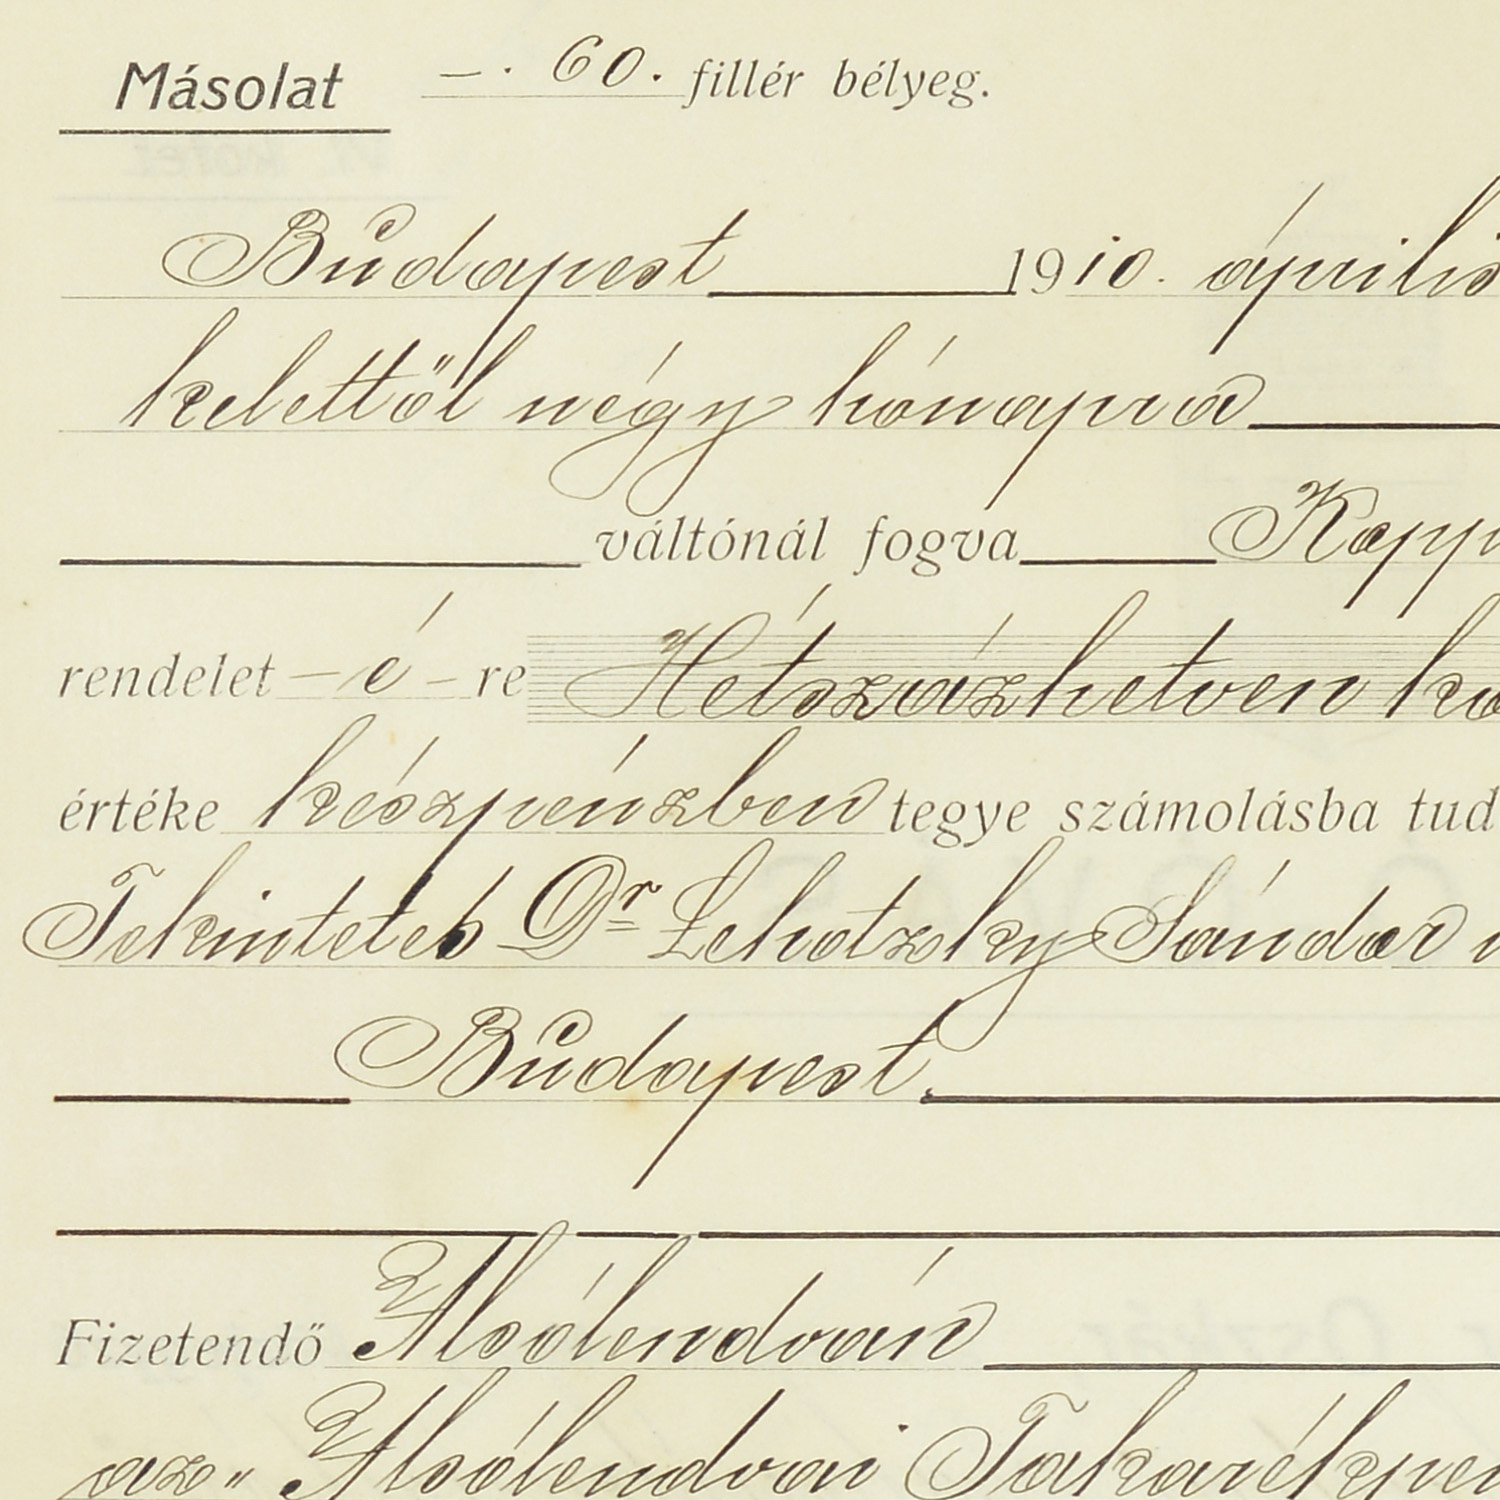 Másolat —. 60. fillér bélyeg.
Budapest 1910. április
kelettől négy hónapra
váltónál fogva
rendelet – é – re Hétszázhetven ko
értéke készpénzben tegye számolásba tud
Tekintetes Dr Lehotzky Sándor
Budapest.
Fizetendő Alsólendván
az „ Alsólendvai Takarékpén